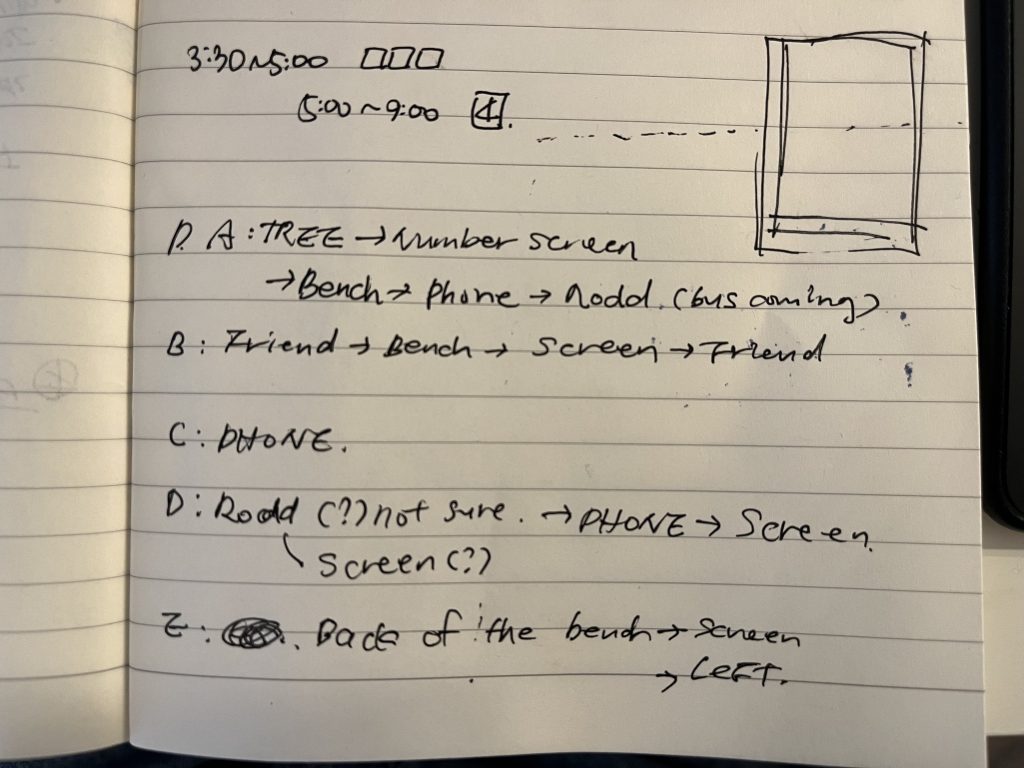 3:30~5:00
5:00~9:00 4.
P. A: TREE → Number screen
→ Bench → phone → Rodd. (bus coming)
B: Friend → Bench → Screen → Friend
C: PHONE.
D: Rodd (?) not sure. → PHONE → Screen.
Screen (?)
E: . Back of the bench → screen
→ LEFT.